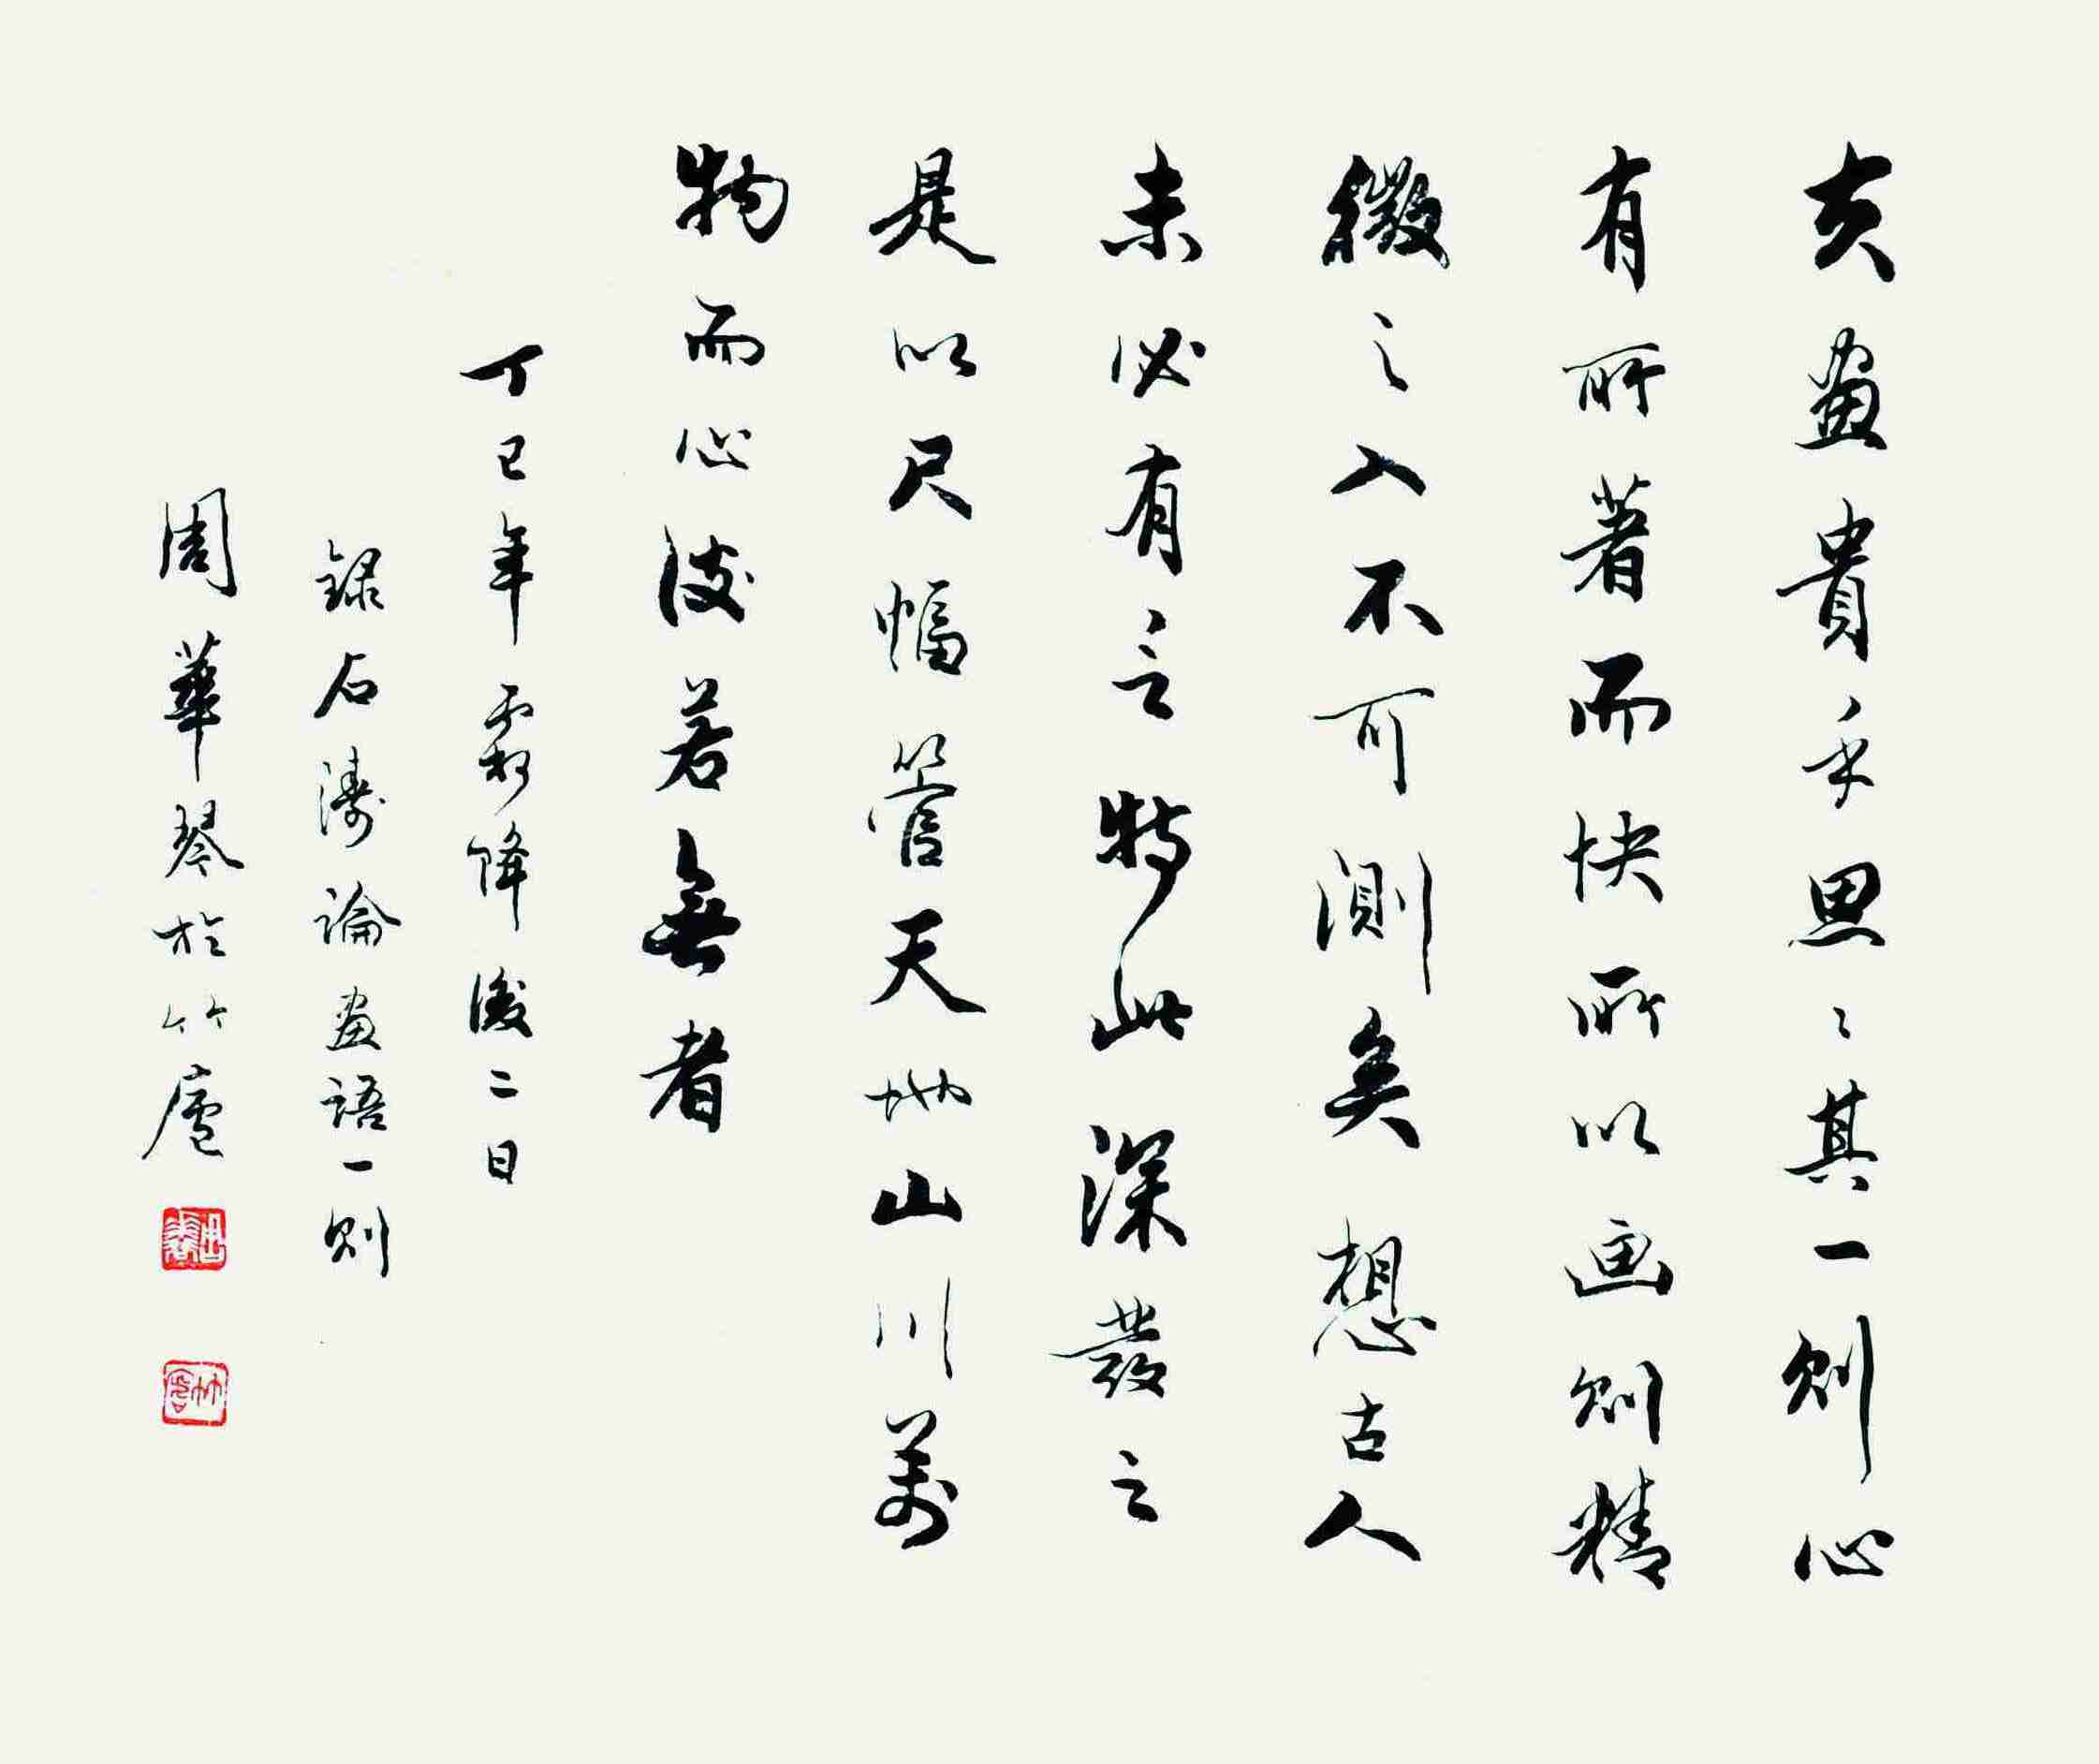 夫畫貴乎思〻其一則心
有所著而快所以画則精
微之入不可測矣想古人
未必有言特此深發之
是以尺幅管天地山川萬
物而心淡若無者
丁巳年霜降後二日
録石濤論畫語一則
周華琴於竹廬